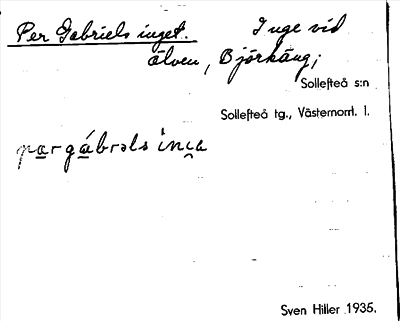 Per Gabriels inget. Inge vid
älven, Björkäng;
Sollefteå s:n
Sollefteå tg., Västernorrl. l.
pargábrəls inɩ̯a
Sven Hiller 1935.